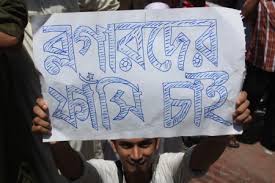 ব্লগারদের
ফাঁসি চাই